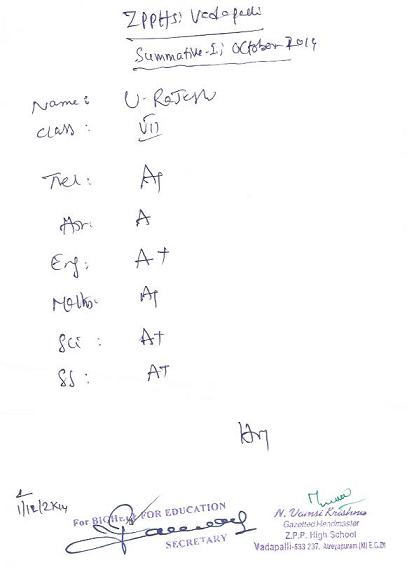 ZPPHS; Vadapalli
Summative-I; October 2014
Name: U. Rajesh
Class: VII
Tel: A+
Hin: A
Eng: A+
Maths: A+
Sci: A+
SS: A+
1/12/2K14
For BIGHelp FOR EDUCATION
SECRETARY
N. Vamsi Krishna
Gazetted Headmaster
Z.P.P. High School
Vadapalli-533 237. Atreyapuram (M) E.G.Dt